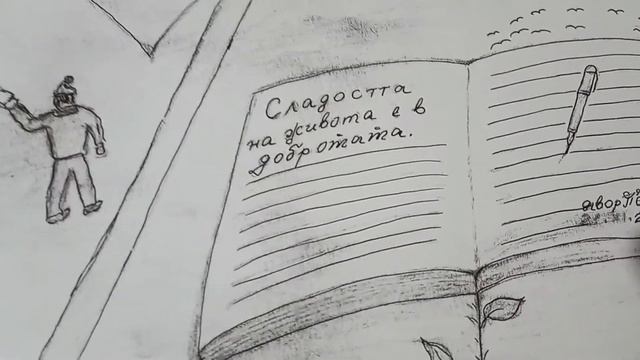 Сладостта
на живота е в
добротата.